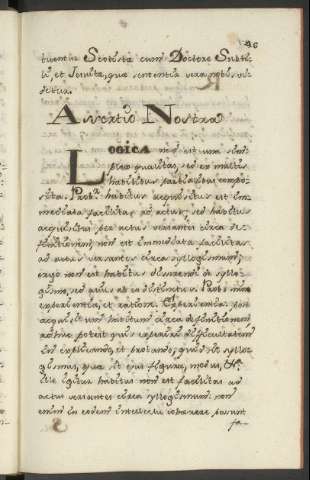 40
tiventia Scotista cum Doctore Subti-
li, et Jesuitæ, quæ sententia vera nobis vi-
detur.
Assertio Nostra
LOGICA non est una sim-
plex qualitas, sed ex multis
habitibus partialibus compo-
sita. Prob. habitus acquisitus est im-
mediata facilitas ad actus; sed habitus
acquisitus per actus versantes circa de-
finitionem non est immediata facilitas
ad actus versantes circa syllogismum;
ergo non est habitus discurrendi de syllo-
gismo, sed alius ab eo distinctus. Prob. min.
experientia, et ratione. Experientia: post
acquisitum habitum circa definitionem
adhuc potest quis experiri difficultatem
in explicando, et probando, quid sit syllo-
gismus, quæ sit ejus figura, modus,
ille igitur habitus non est facilitas ad
actus versantes circa syllogismum: non
enim in eodem intellectu cohærere possunt
fa-